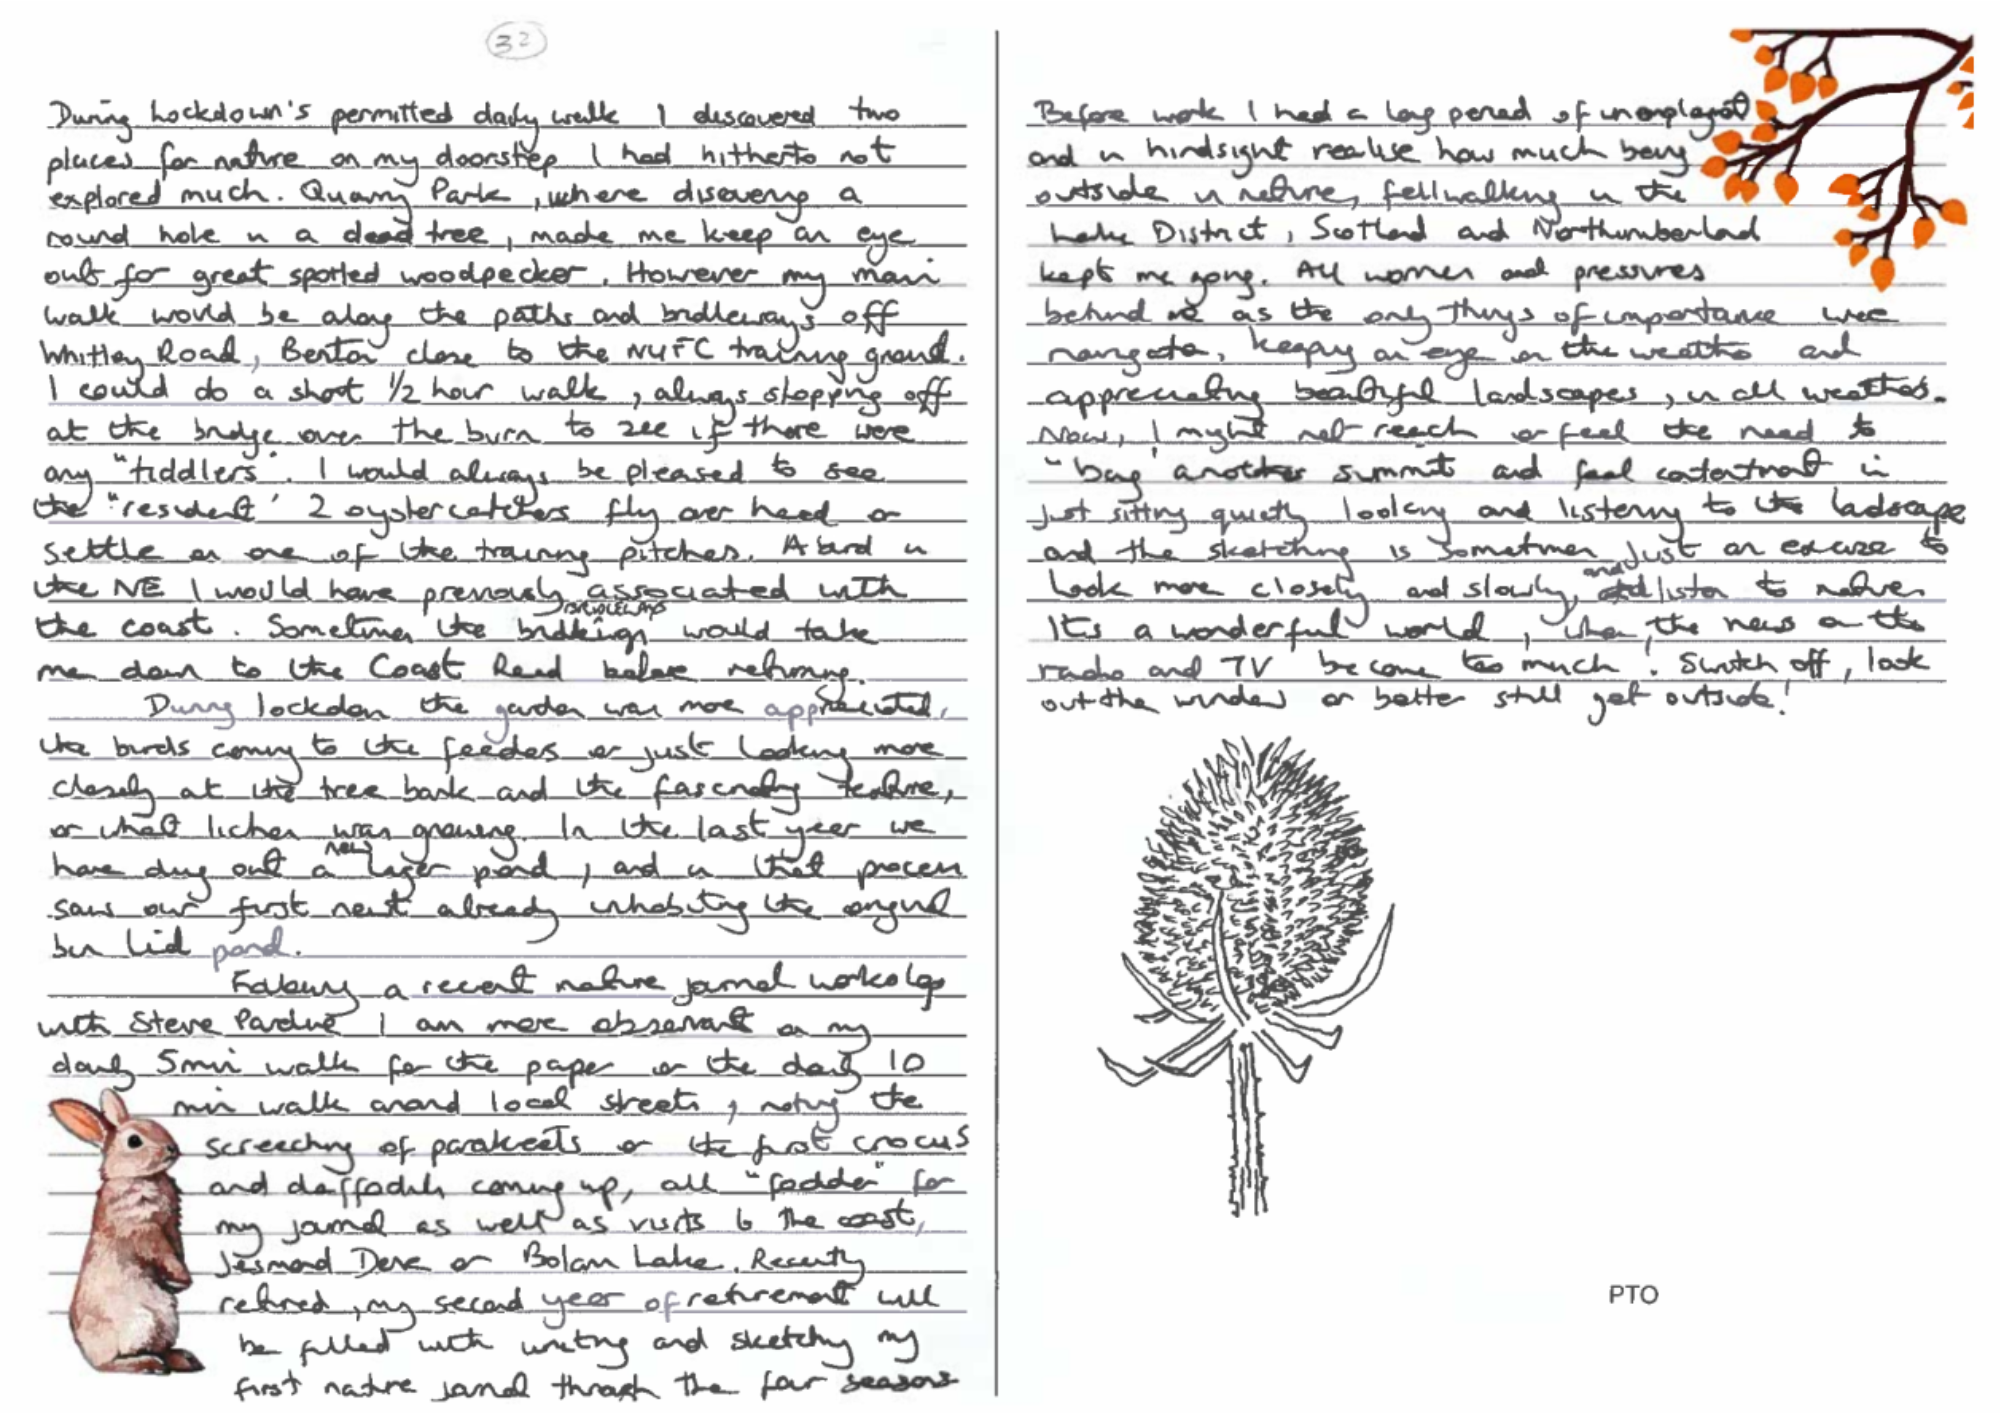 32
During Lockdown's permitted daily walk I discovered two
places for nature on my doorstep I had hitherto not
explored much. Quarry Park, where discovering a
round hole in a dead tree, made me keep an eye
out for great spotted woodpecker. However my main
walk would be along the paths and bridleways off
Whitley Road, Benton close to the NUFC training ground.
I could do a short 1/2 hour walk, always stopping off
at the bridge over the burn to see if there were
any "tiddlers". I would always be pleased to see
the "resident" 2 oystercatchers fly over head or
settle on one of the training pitches. A bird in
the NE I would have previously associated with
BRIDLEWAYS
the coast. Sometimes the would take
me down to the Coast Road before returning.
During lockdown the garden was more appreciated,
the birds coming to the feeders or just looking more
closely at the tree bark and the fascinating texture,
or what lichen was growing. In the last year we
have dug out a new larger pond, and in that process
saw our first newt already inhabiting the original
bin lid pond.
Following a recent nature journal workshop
with Steve Pardue I am more observant on my
daily 5min walk for the paper or the daily 10
min walk around local streets, noting the
screeching of parakeets or the first crocus
and daffodils coming up, all "fodder" for
my journal as well as visits to the coast,
Jesmond Dene or Bolam Lake. Recently
retired, my second year of retirement will
be filled with writing and sketching my
first nature journal through the four seasons
Before work I had a long period of unemployment
and in hindsight realise how much being
outside in nature, fellwalking in the
Lake District, Scotland and Northumberland
kept me going. All worries and pressures
behind me as the only things of importance were
navigation, keeping an eye on the weather and
appreciating beautiful landscapes, in all weathers.
Now, I might not reach or feel the need to
"bag" another summit and feel contentment in
just sitting quietly looking and listening to the landscape
and the sketching is sometimes just an excuse to
look more closely and slowly, and just listen to nature.
It's a wonderful world, when the news on the
radio and TV become too much! Switch off, look
out the window or better still get outside!
PTO